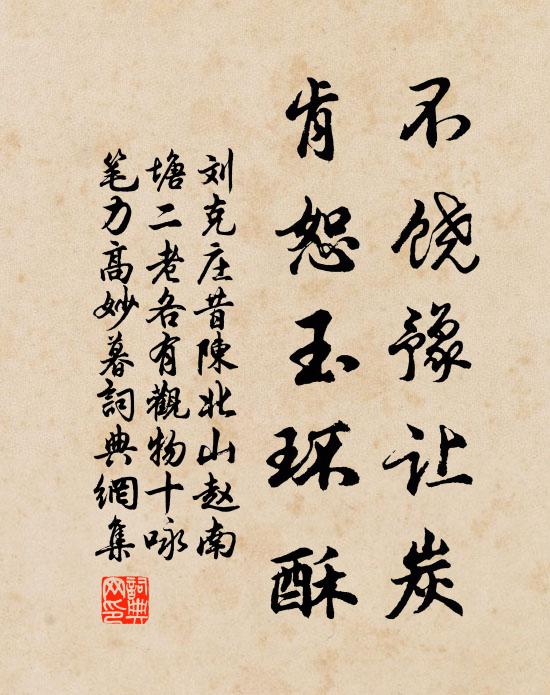 不饶豫让炭
肯恕玉环酥
刘克庄昔陳北山赵南
塘二老各有觀物十咏
笔力高妙暮詞典網集
詞典網印